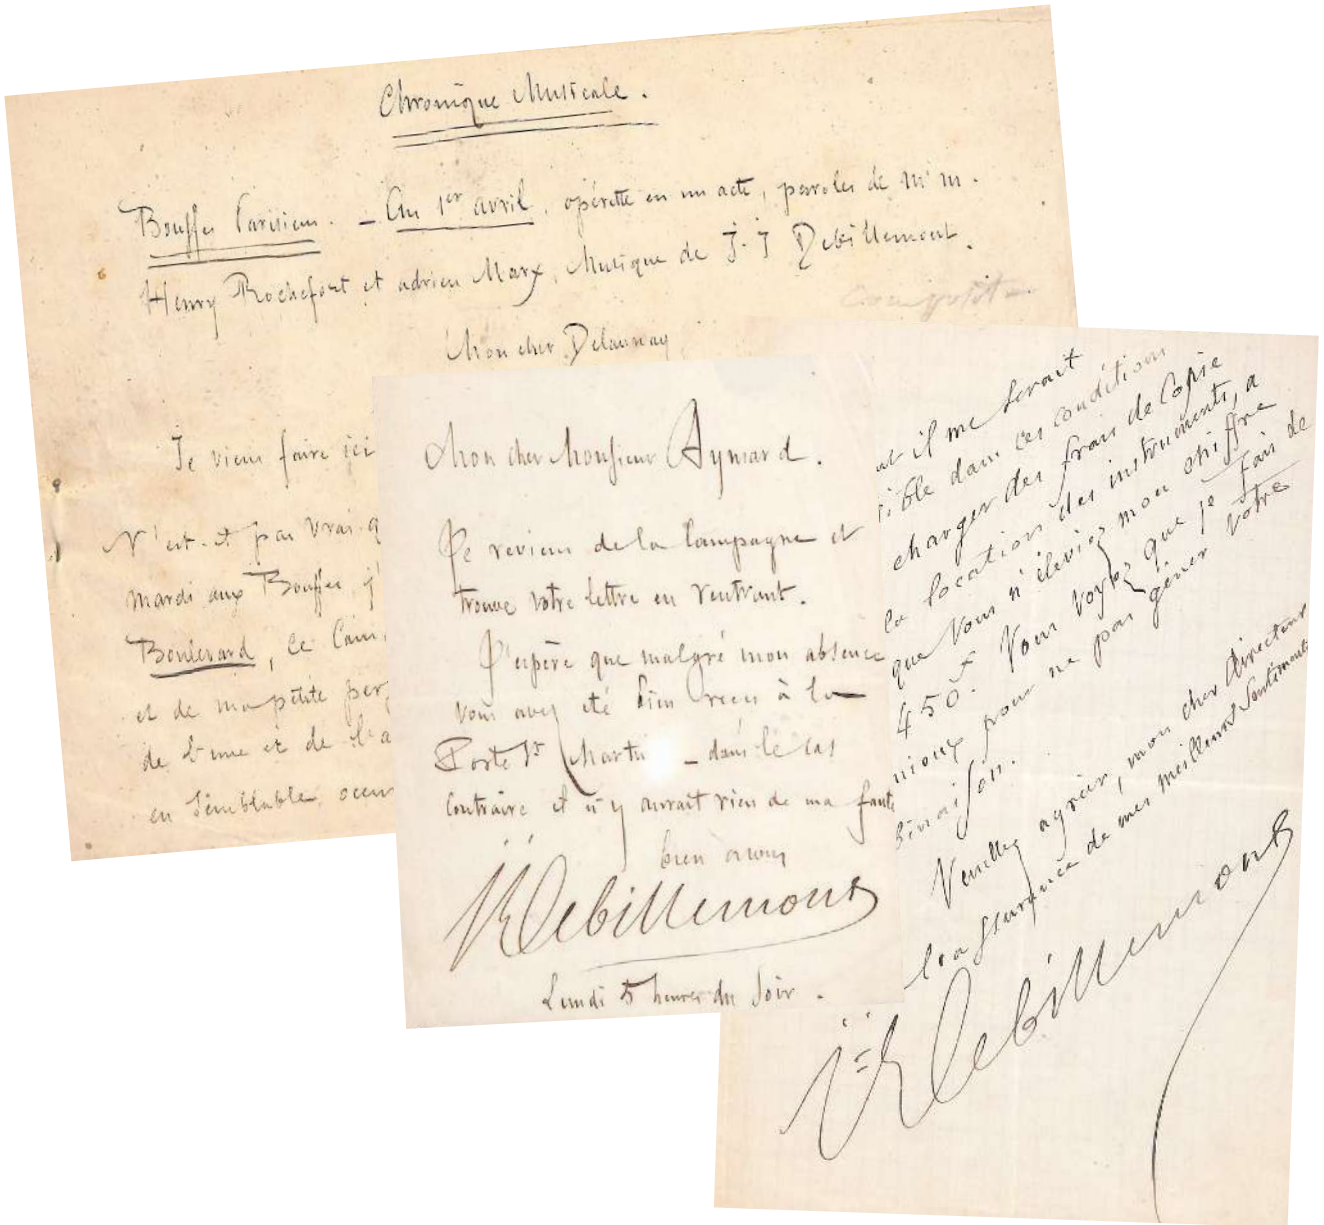 Chronique Musicale.
Bouffes Parisiens. – Un 1er avril, opérette en un acte, paroles de M M.
Henry Rochefort et adrien Marx, Musique de J. J Debillemont.
Mon cher Delaunay
Je viens faire ici
N'est-it pas vrai q
mardi aux Bouffes, j'
Boulevard, Ce
et de ma petite
de l'une et de l'a
en Semblable
Mon cher Monsieur Aymard.
Je reviens de la Campagne et
trouve votre lettre en rentrant.
J'espère que malgré mon absence
vous avez été bien recu à la
Porte St Martin – dans le cas
Contraire il n'y aurait rien de ma faute
bien à vous
JJ Debillemont
Lundi 5 heures du Soir.
nt il me serait
sible dans ces condition
charger des frais de Copie
la location des instruments, a
que Vous n'éleviez mon chiffre
450 f. Vous voyez que je fais de
mieux pour ne pas gêner votre
binaison.
Veuillez agréer, mon cher directeur
l'assurance de mes meilleurs Sentiments
JJ Debillemont